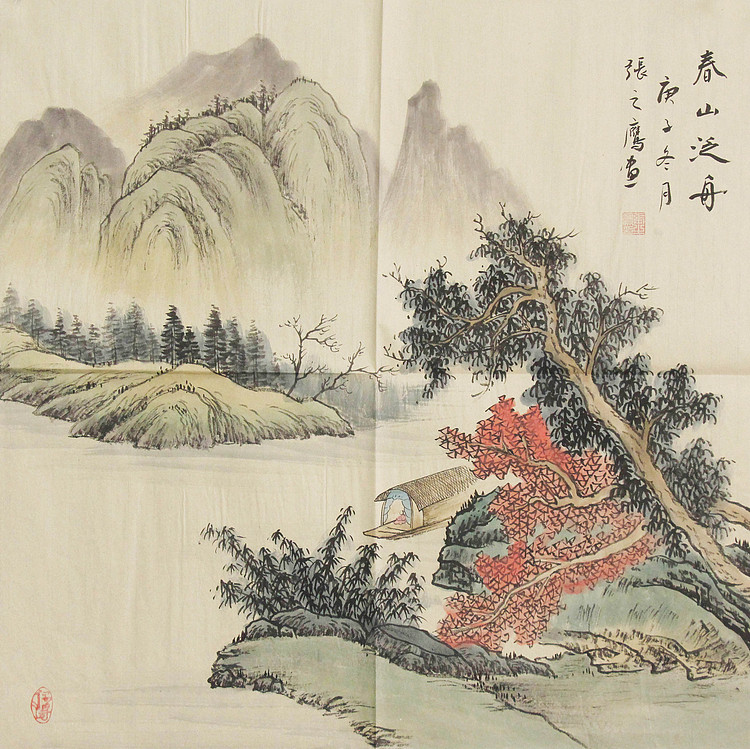 春山泛舟
庚子冬月
張之鷹畫